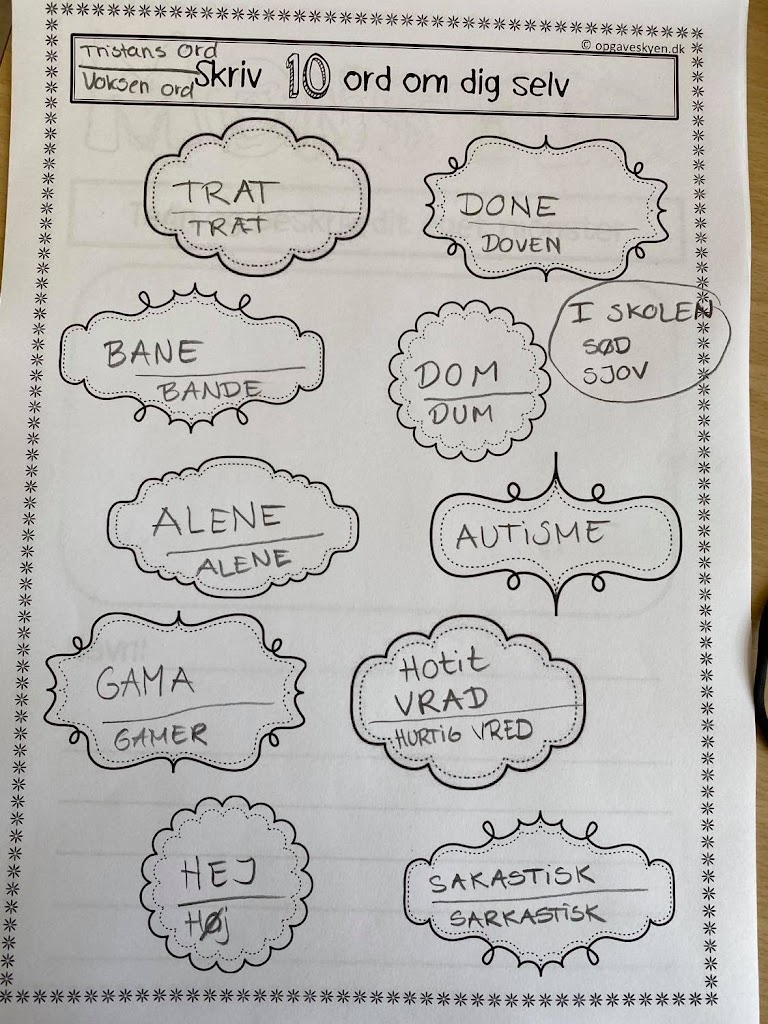 © opgaveskyen.dk
Tristans ord
Voksen ord
Skriv 10 ord om dig selv
TRAT
TRÆT
DONE
DOVEN
BANE
BANDE
DOM
DUM
I SKOLEN
SØD
SJOV
ALENE
ALENE
AUTISME
GAMA
GAMER
Hotit
VRAD
HURTIG VRED
HEJ
HØj
SAKASTISK
SARKASTISK